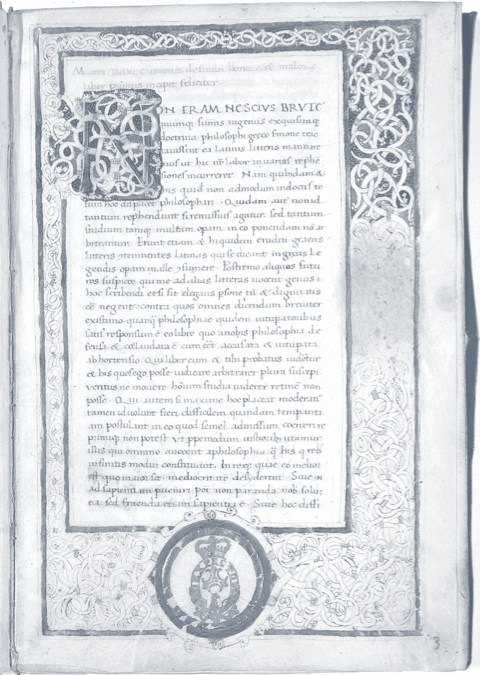 liber primus incipit feliciter
NON ERAM NESCIVS BRVTE
doctrina philosophi greco sermone
ea latinis litteris mandare
hic nr̄ labor in varias
siones incurreret. Nam quibusdam &
his quid non admodum indoctis to
tum hoc displicet philosophari. Quidam aut̄ non id
tantum reprehendunt si remissius agatur. sed tantum
studium tamq; multam operam in eo ponendam nō ar
bitrantur. Erunt etiam & hi quidem eruditi grecis
litteris contemnentes latinas qui se dicant in grecis le
gendis operam malle cōsumere. Postremo aliquos futu
ros suspicor qui me ad alias litteras vocent genus
hoc scribendi etsi sit elegans psone tn̄ & dignitatis
eē negent. contra quos omnes dicendum breuiter
existimo quanq̄ philosophiae quidem uituperatoribus
satis responsum ē eo libro quo a nobis philosophia de
fensa & collaudata ē cum eēt accusata & uituperata
ab hortensio. Qui liber cum & tibi probatus uideretur
& his quos ego posse iudicare arbitrarer plura suscepi
veritus ne mouere hominum studia uiderer retinere non
posse. Qui autem si maxime hoc placeat moderatius
tamen id uolunt fieri difficilem quandam temperantiam
postulant in eo quod semel admissum coerceri re
primiq; non potest. Vt ppemodum iustioribus utamur
illis qui omnino auocent a philosophia q̄ his q reb;
infinitis modum constituant. In req; quae eo melior
est quo maior sit mediocritatē desyderent. Siue .n.
ad sapientiam pueniri pōt non paranda nob solum
ea sed fruenda etiam sapientia ē. Siue hoc diffi
3